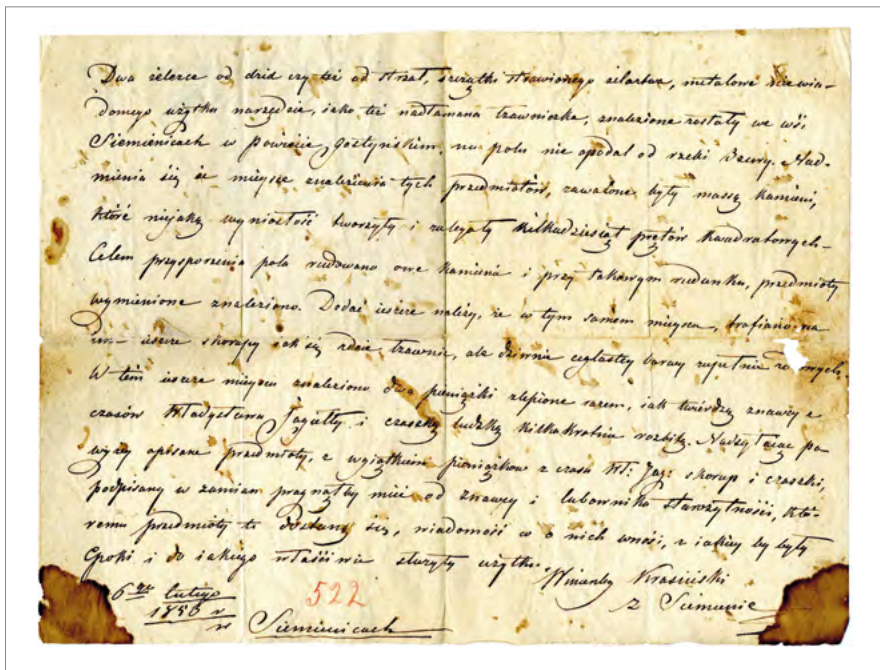 Dwa żelezce od dzid czy też od strzał, szczątki strawionego żelaztwa, metalowe niewia-
domego użytku narzędzie, jako też nadłamana łzawniczka, znalezione zostały we wsi
Siemienicach w powiecie Gostyńskim, na polu nie opodal od rzeki Bzury. Nad-
mienia się że miejsce znalezienia tych przedmiotów, zawalone były massą kamieni,
które niejaką wyniosłość tworzyły i zalegały kilkadziesiąt prętów kwadratowych-
Celem przysporzenia pola rudowano owe kamienie i przy takowym rudunku, przedmioty
wymienione znaleziono. Dodać ieszcze należy, że w tym samem miejscu, trafiano na
ieszcze skorupy iak się zdaie łzawnic, ale dziwnie ceglastey barwy zupełnie
W tém ieszcze miejscu znaleziono dwa pieniążki zlepione razem, iak twierdzą znawcy z
czasów Władysława Jagiełły i czaszkę ludzką kilkakrotnie rozbitą. Nadsyłaiąc po-
wyżey opisane przedmioty, z wyiątkiem pieniążków z czasu Wł: Jag: skorup i czaszki,
podpisany w zamian pragnąłby mieć od znawcy i lubownika starożytności, któ-
remu przedmioty te dostaną się, wiadomość o nich wność, z iakiey by były
Epoki i do iakiego właściwie służyły użytku.
Wincenty Krasiński
6 lutego
1856 r
522
z Siemienic
w Siemienicach